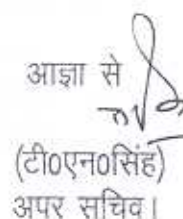 आज्ञा से
(टी0एन0सिंह)
अपर सचिव।